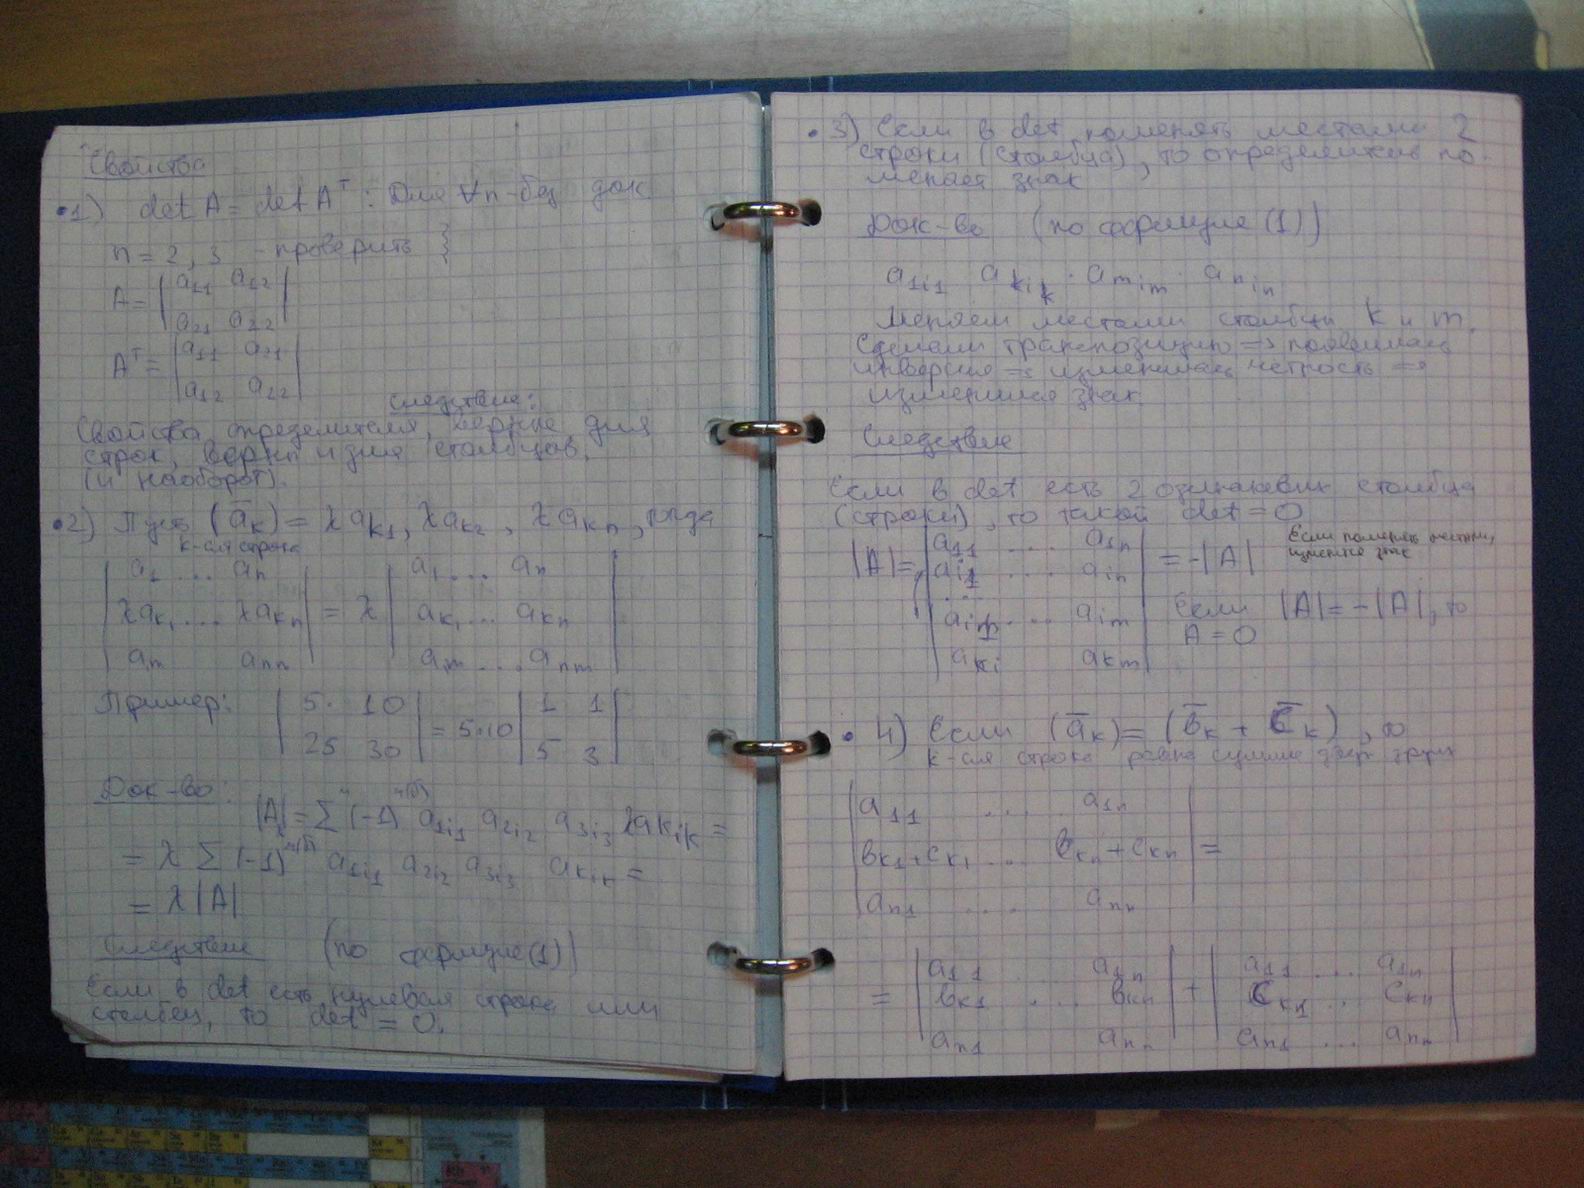 Свойства
•1) det A = det Aᵀ : Для ∀n - без док
n = 2, 3 - проверить }
A = | a₁₁ a₁₂
a₂₁ a₂₂ |
Aᵀ = | a₁₁ a₂₁
a₁₂ a₂₂ |
Следствие:
Свойства определителя, верные для
строк, верны и для столбцов.
(и наоборот).
•2) Пусть (a̅ₖ) = λaₖ₁, λaₖ₂, λaₖₙ, тогда
к-ая строка
| a₁ .... aₙ | | a₁ .... aₙ |
| λaₖ₁ .... λaₖₙ | = λ | aₖ₁ .... aₖₙ |
| aₘ aₙₙ | | aₘ .... aₙₘ |
Пример: | 5. 10 | = 5·10 | 1 1 |
| 25 30 | | 5 3 |
Док-во:
|A| = Σ (-1) a₁ᵢ₁ a₂ᵢ₂ a₃ᵢ₃ λaₖᵢₖ =
= λ Σ (-1) a₁ᵢ₁ a₂ᵢ₂ a₃ᵢ₃ aₖᵢₖ =
= λ |A|
Следствие (по формуле (1))
Если в det есть нулевая строка или
столбец, то det = 0.
•3) Если в det поменять местами 2
строки (столбца), то определитель по-
меняет знак
Док-во (по формуле (1))
a₁ᵢ₁ aₖᵢₖ · aₘᵢₘ · aₙᵢₙ
Меняем местами столбцы k и m.
Сделали транспозицию => появилась
инверсия => изменилась четность =>
изменился знак
Следствие
Если в det есть 2 одинаковых столбца
(строки), то такой det = 0
|A| = | a₁₁ .... a₁ₙ | = -|A| Если поменять местами,
| aᵢ₁ .... aᵢₙ | изменится знак
...
| .... aᵢₘ | Если |A| = -|A|, то
A = 0
| aₖᵢ aₖₘ |
• 4) Если (a̅ₖ) = (b̅ₖ + c̅ₖ), то
к-ая строка равна сумме двух других
| a₁₁ .... a₁ₙ |
| bₖ₁+cₖ₁ .... bₖₙ+cₖₙ | =
| aₙ₁ .... aₙₙ |
= | a₁₁ a₁ₙ | + | a₁₁ .... a₁ₙ |
| bₖ₁ .... bₖₙ | | cₖ₁ .. cₖₙ |
| aₙ₁ aₙₙ | | aₙ₁ ... aₙₙ |